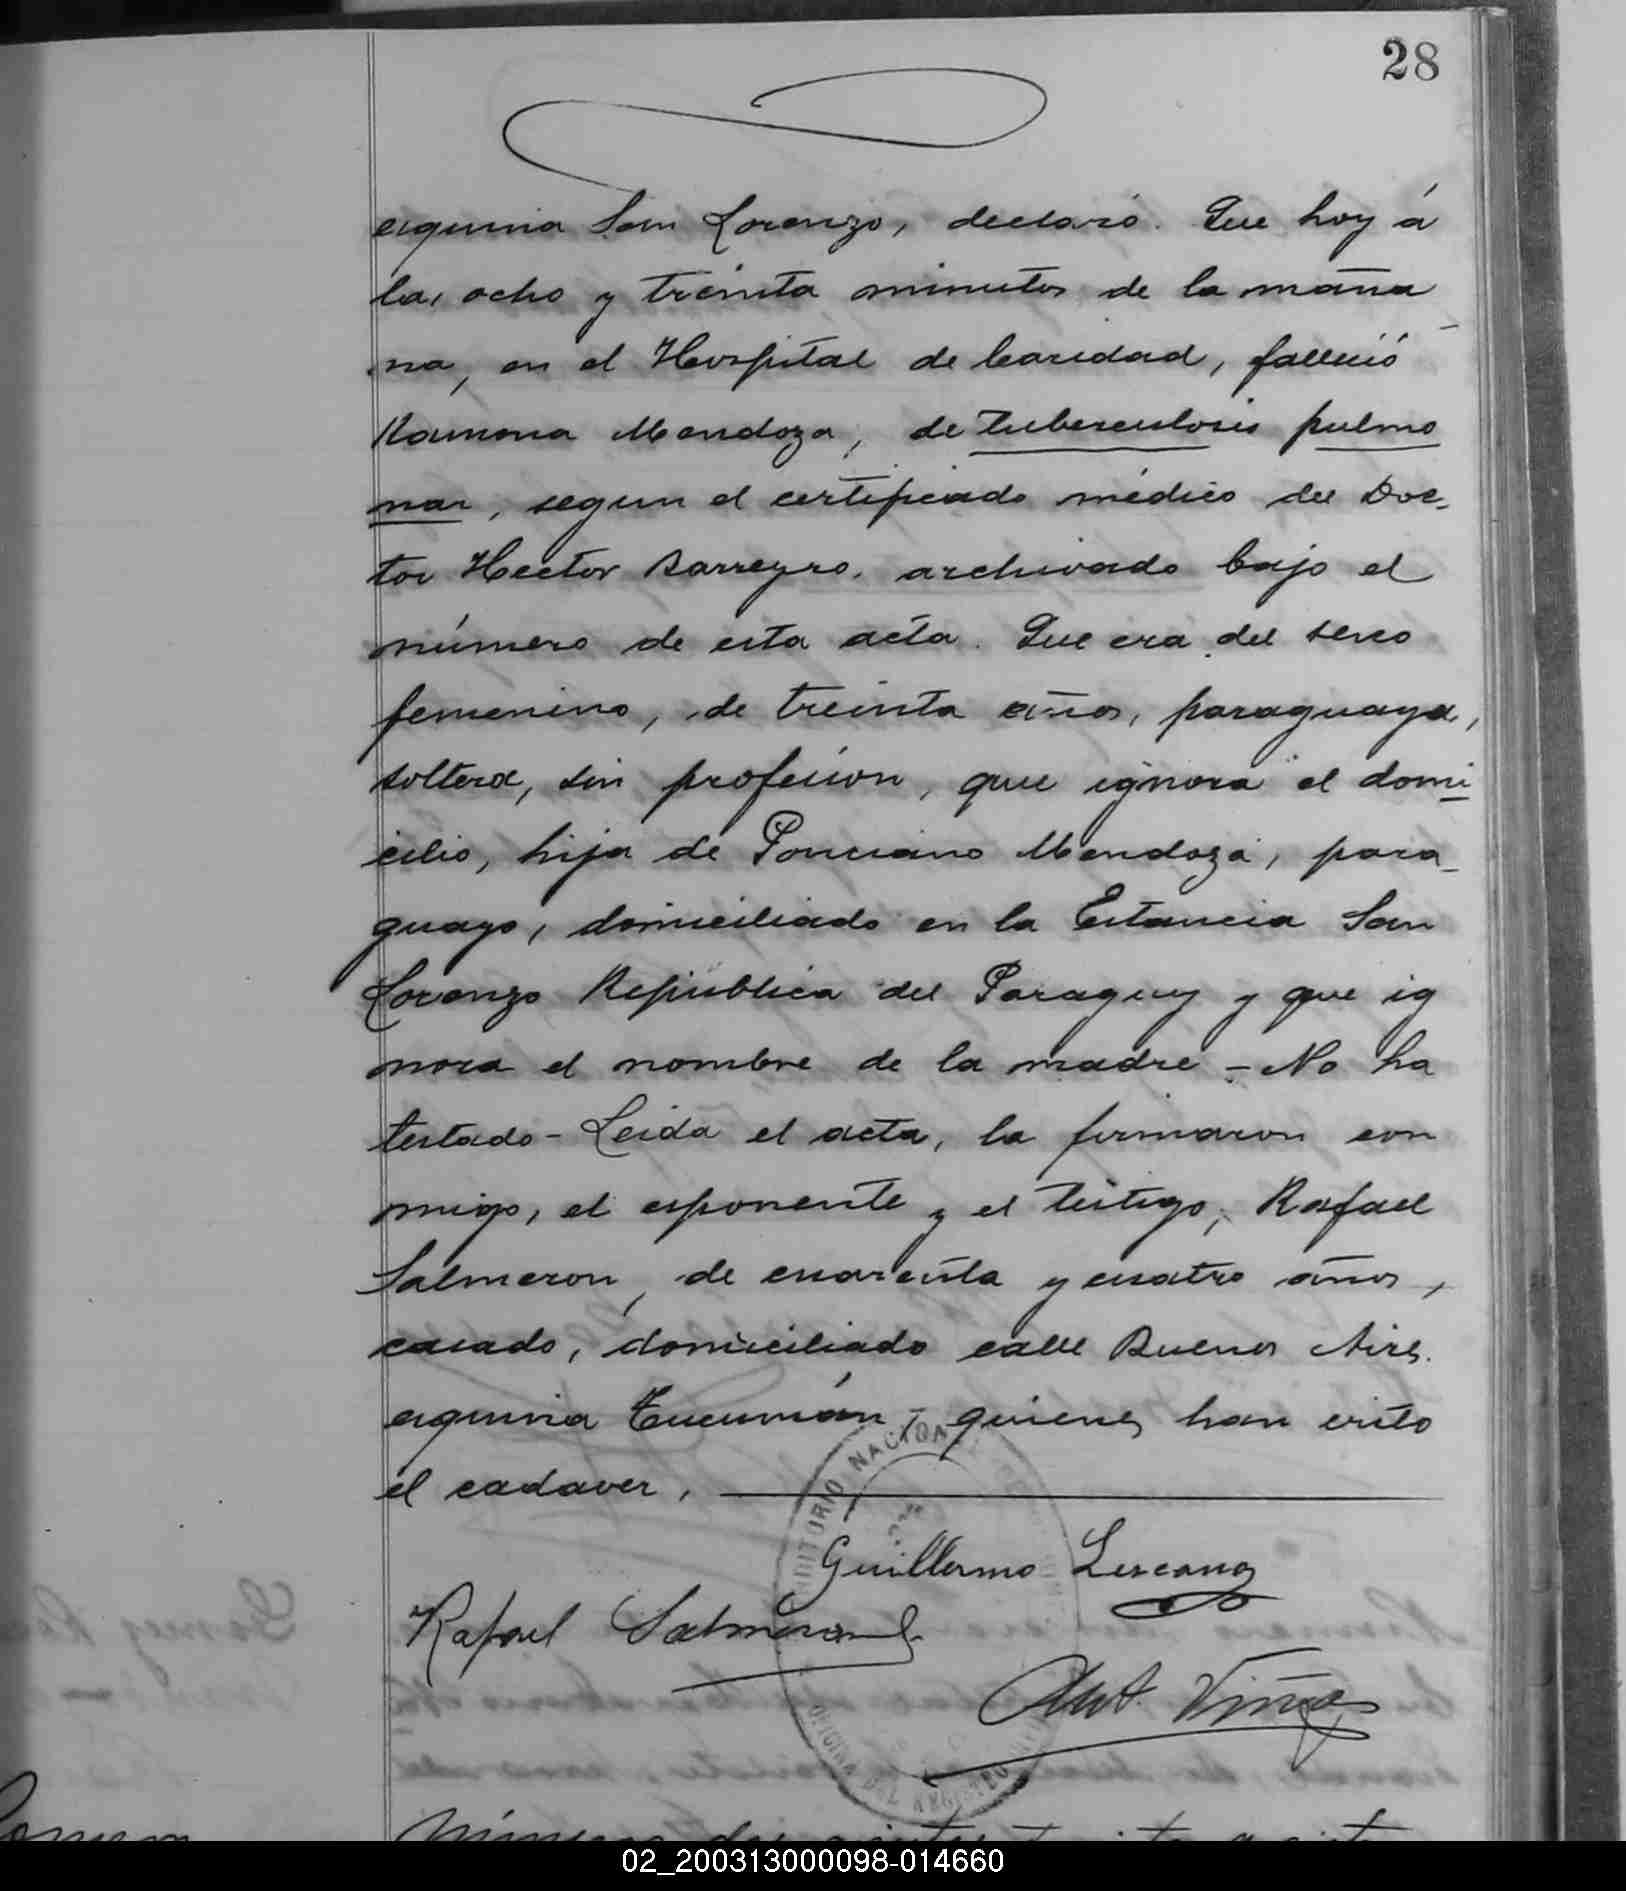 28
esquina San Lorenzo, declaró. Que hoy á
las ocho y treinta minutos de la maña
na, en el Hospital de Caridad, falleció
Ramona Mendoza, de tuberculosis pulmo
nar, segun el certificado médico del Doc-
tor Hector Barreyro, archivado bajo el
número de esta acta. Que era del sexo
femenino, de treinta años, paraguaya,
soltera, sin profesion, que ignora el domi-
cilio, hija de Ponciano Mendoza, para-
guayo, domiciliado en la Estancia San
Lorenzo República del Paraguay y que ig
nora el nombre de la madre - No ha
testado - Leida el acta, la firmaron con
migo, el esponente y el testigo, Rafael
Salmeron, de cuarenta y cuatro años,
casado, domiciliado calle Buenos Aires
esquina Tucumán, quienes han visto
el cadaver.
Guillermo Lescano
Rafael Salmeron
Ant. Viñas
OFICINA DEL REGISTRO
02_200313000098-014660